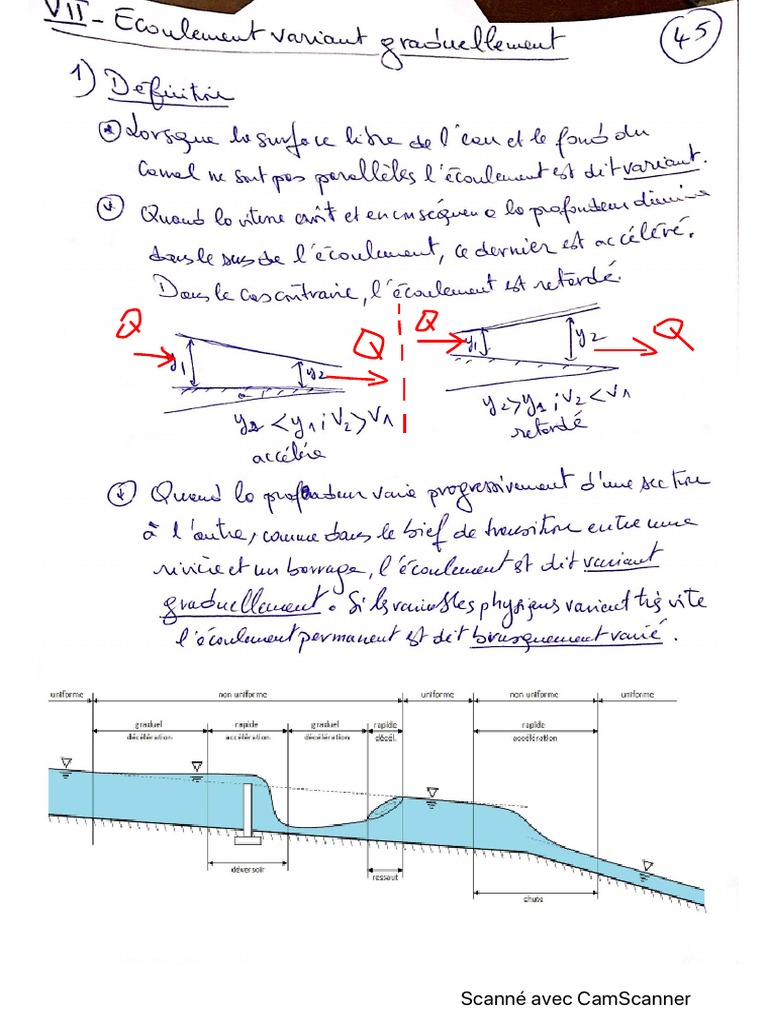 VII - Ecoulement variant graduellement
45
1) Définition
Lorsque la surface libre de l'eau et le fond du
Canal ne sont pas parallèles l'écoulement est dit variant.
Quand la vitesse croît et en conséquence la profondeur diminue
dans le sens de l'écoulement, ce dernier est accéléré.
Dans le cas contraire, l'écoulement est retardé.
Q Q Q Q
y1 y2 y1 y2
y2 < y1 ; V2 > V1
accélérée
y2 > y1 ; V2 < V1
retardé
Quand la profondeur varie progressivement d'une section
à l'autre, comme dans le bief de transition entre une
rivière et un barrage, l'écoulement est dit variant
graduellement. Si les variables physiques varient très vite
l'écoulement permanent est dit brusquement varié.
uniforme non uniforme uniforme non uniforme uniforme
graduel rapide graduel rapide rapide
décélération accélération décélération décél. accélération
déversoir
ressaut
chute
Scanné avec CamScanner